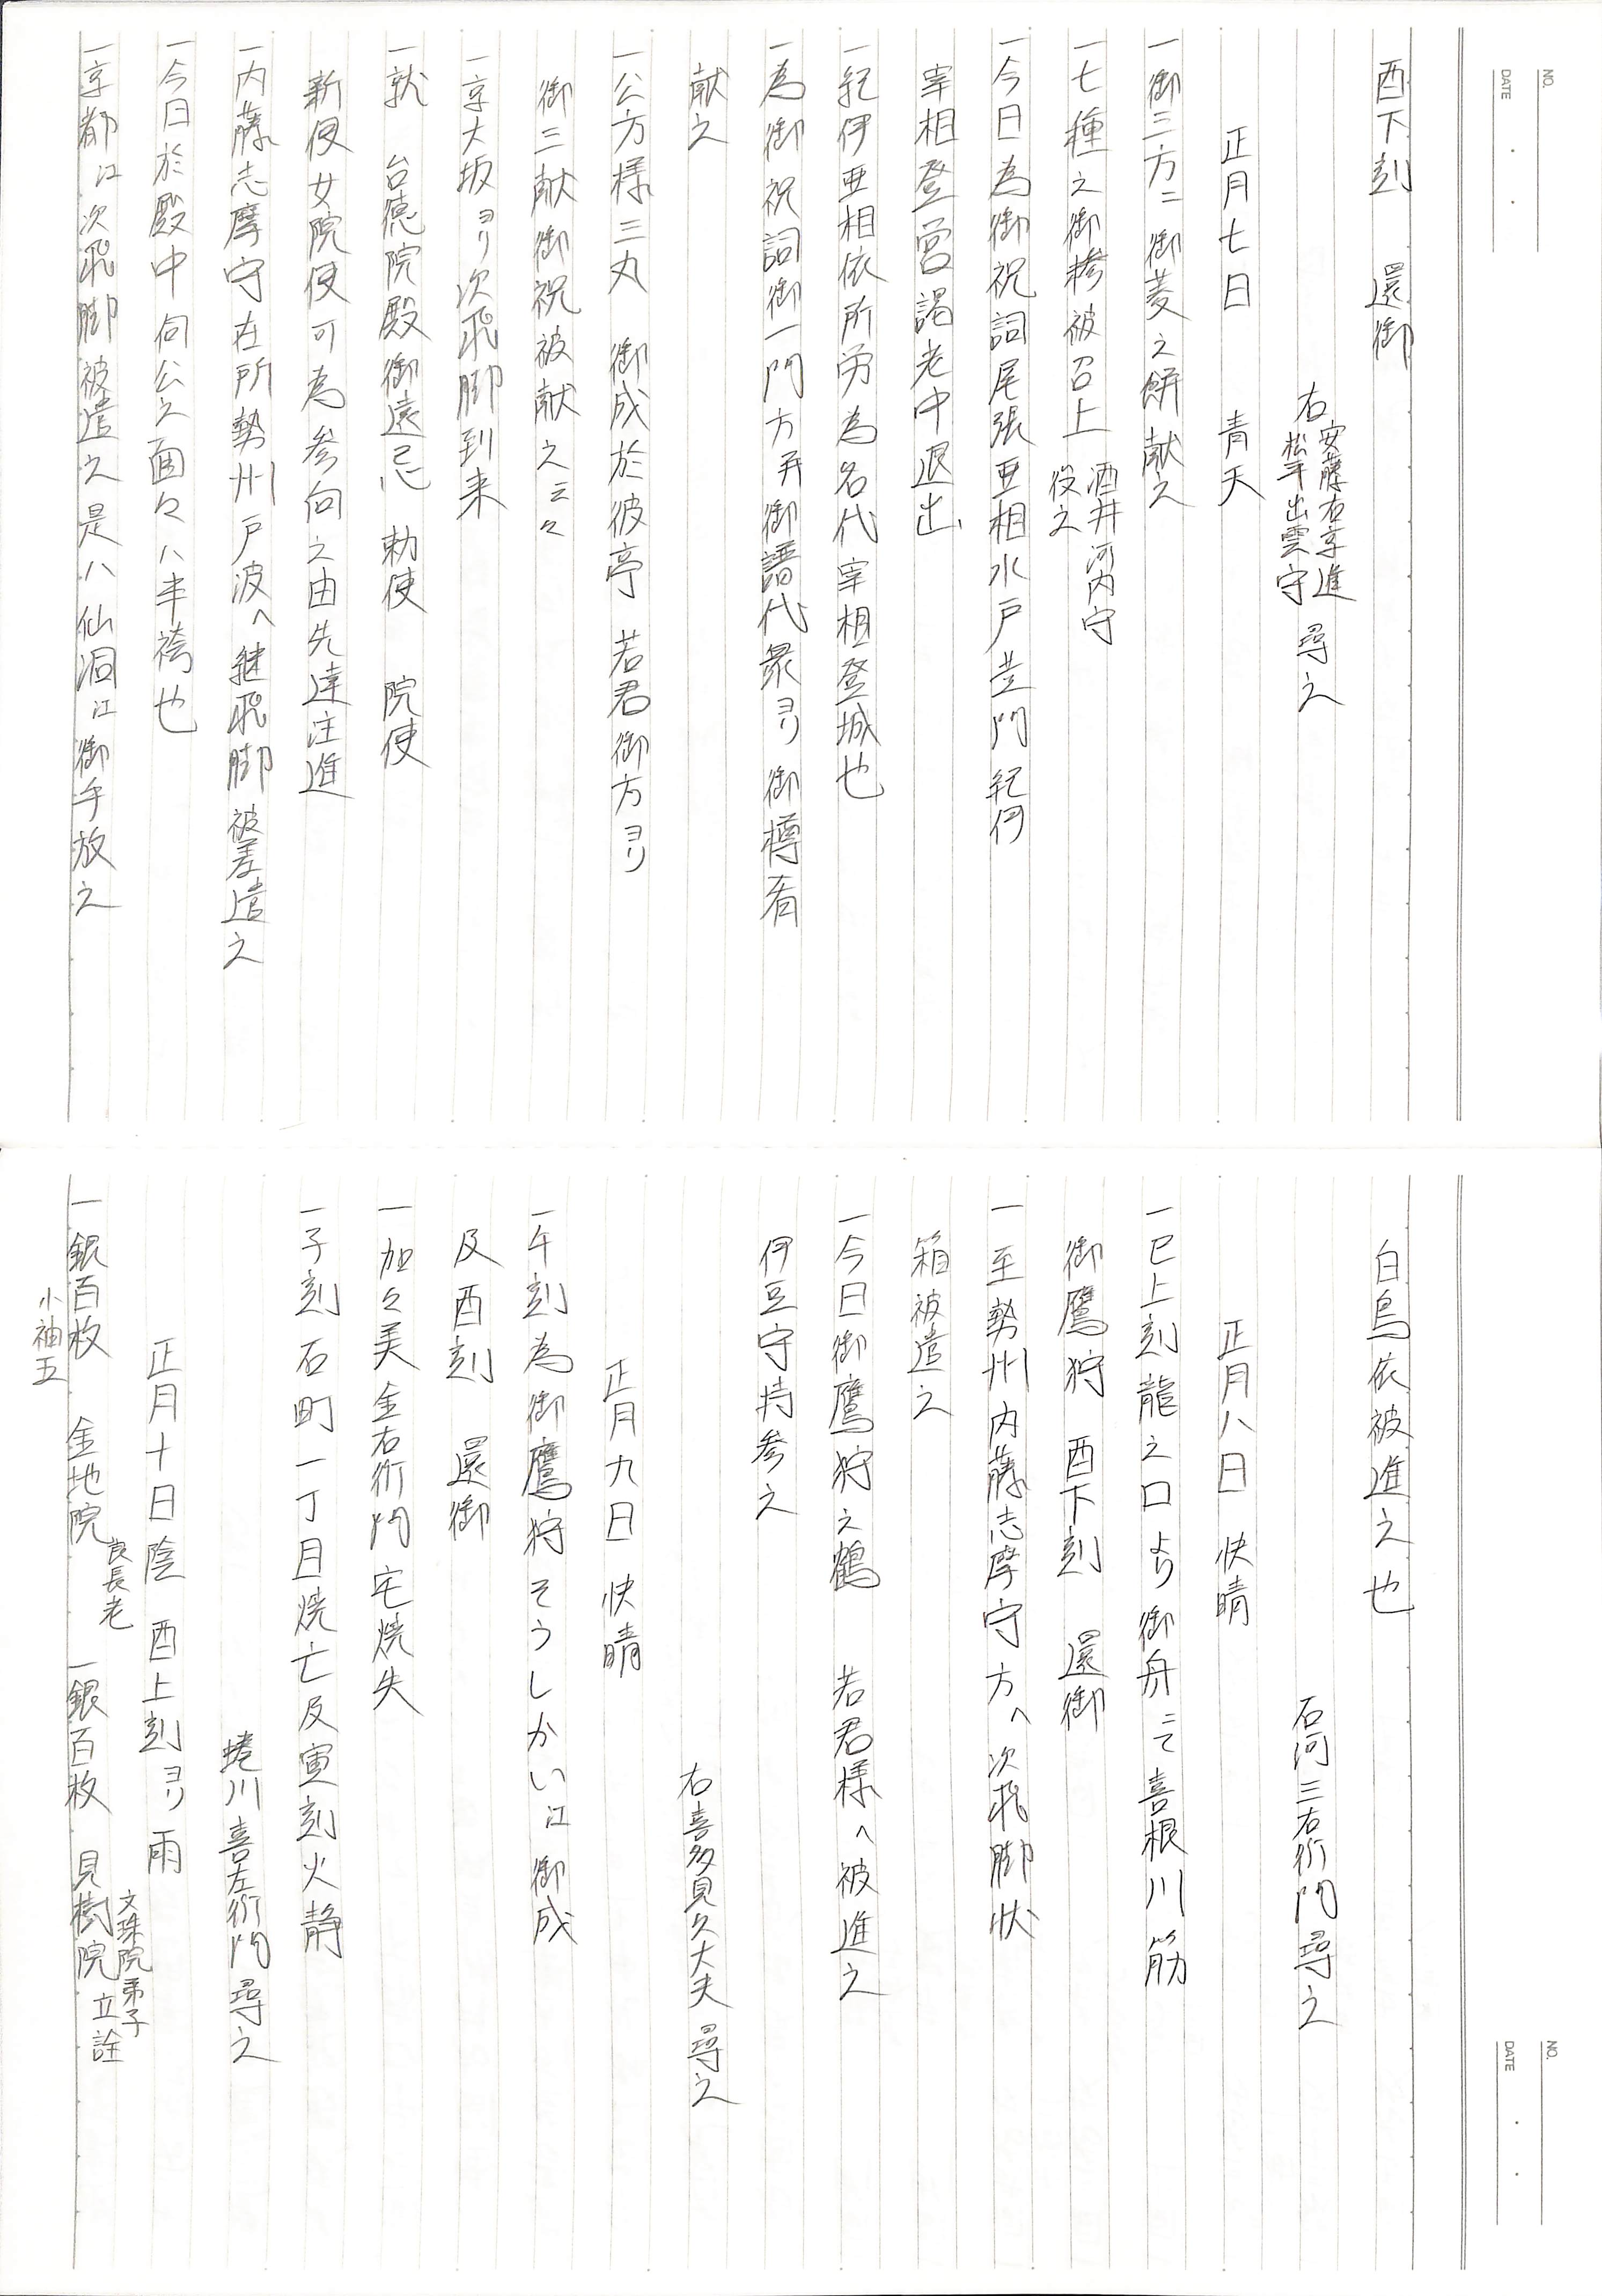 酉下刻　還御
右 安藤右京進
松平出雲守 尋之
正月七日　青天
一御三方ニ御菱之餅献之
一七種之御糝被召上 酒井河内守
役之
一今日為御祝詞尾張亜相水戸黄門紀伊
宰相登営謁老中退出
一紀伊亜相依所労為名代宰相登城也
一為御祝詞御一門方并御譜代衆ヨリ御樽肴
献之
一公方様三丸　御成於彼亭　若君御方ヨリ
御三献御祝被献之云々
一京大坂ヨリ次飛脚到来
一就　台徳院殿御遠忌　勅使　院使
新使女院使可為参向之由先達注進
一内藤志摩守在所勢州戸波へ継飛脚被差遣之
一今日於殿中伺公之面々ハ半袴也
一京都江次飛脚被遣之是ハ仙洞江御手放之
白鳥依被進之也
石河三右衛門尋之
正月八日　快晴
一巳上刻龍之口より御舟ニて喜根川筋
御鷹狩　酉下刻　還御
一至勢州内藤志摩守方へ次飛脚状
箱被遣之
一今日御鷹狩之鶴　若君様へ被進之
伊豆守持参之
右喜多見久大夫尋之
正月九日　快晴
一午刻為御鷹狩そうしかい江御成
及酉刻　還御
一加々美金右衛門宅焼失
一子刻石町一丁目焼亡及寅刻火静
蜷川喜左衛門尋之
正月十日陰　酉上刻ヨリ雨
一銀百枚　金地院 良長老
小袖五
一銀百枚　見樹院 文珠院弟子
立詮
NO.
DATE　・　・
NO.
DATE　・　・